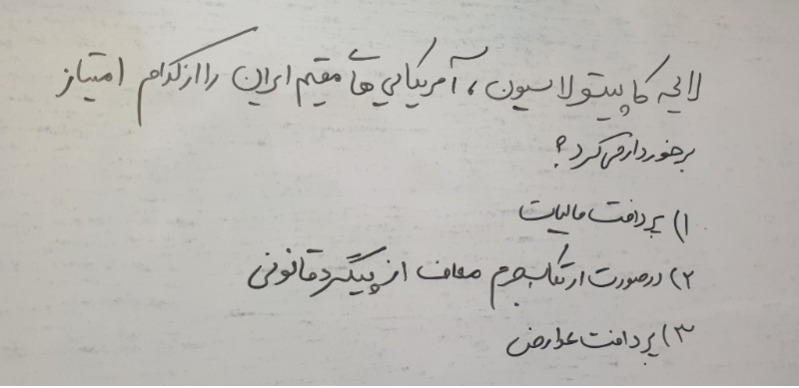 لایحه کاپیتولاسیون، آمریکایی‌های مقیم ایران را از کدام امتیاز
برخوردار می‌کرد؟
۱) پرداخت مالیات
۲) درصورت ارتکاب جرم معاف از پیگرد قانونی
۳) پرداخت عوارض